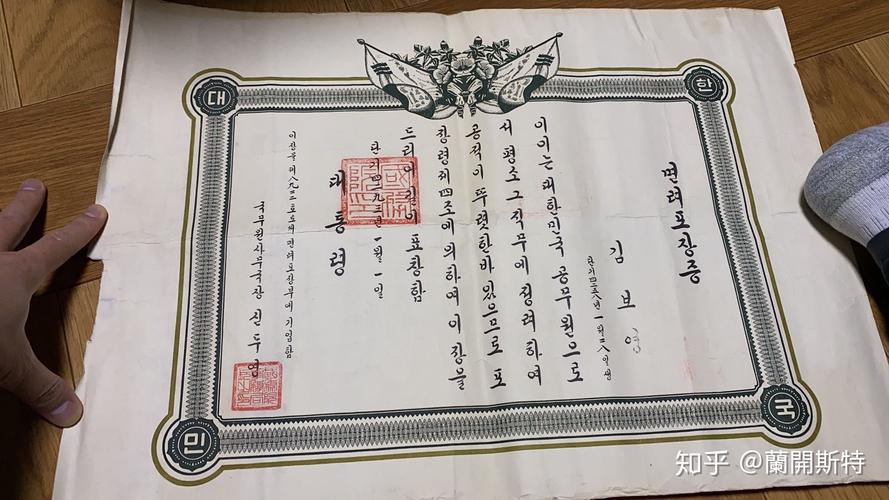 대
한
민
국
면려포장증
김 보
단기四二五八년 一월二八일생
이이는 대한민국 공무원으로
서 평소 그 직무에 정려하여
공적이 뚜렷한바 있으므로 포
장령제四조에 의하여 이 장을
드리어 길이 표창함
단기四二九三년 一월 一일
대통령
면려포장부에 기입함
국무원사무국장 신두영
知乎 @蘭開斯特